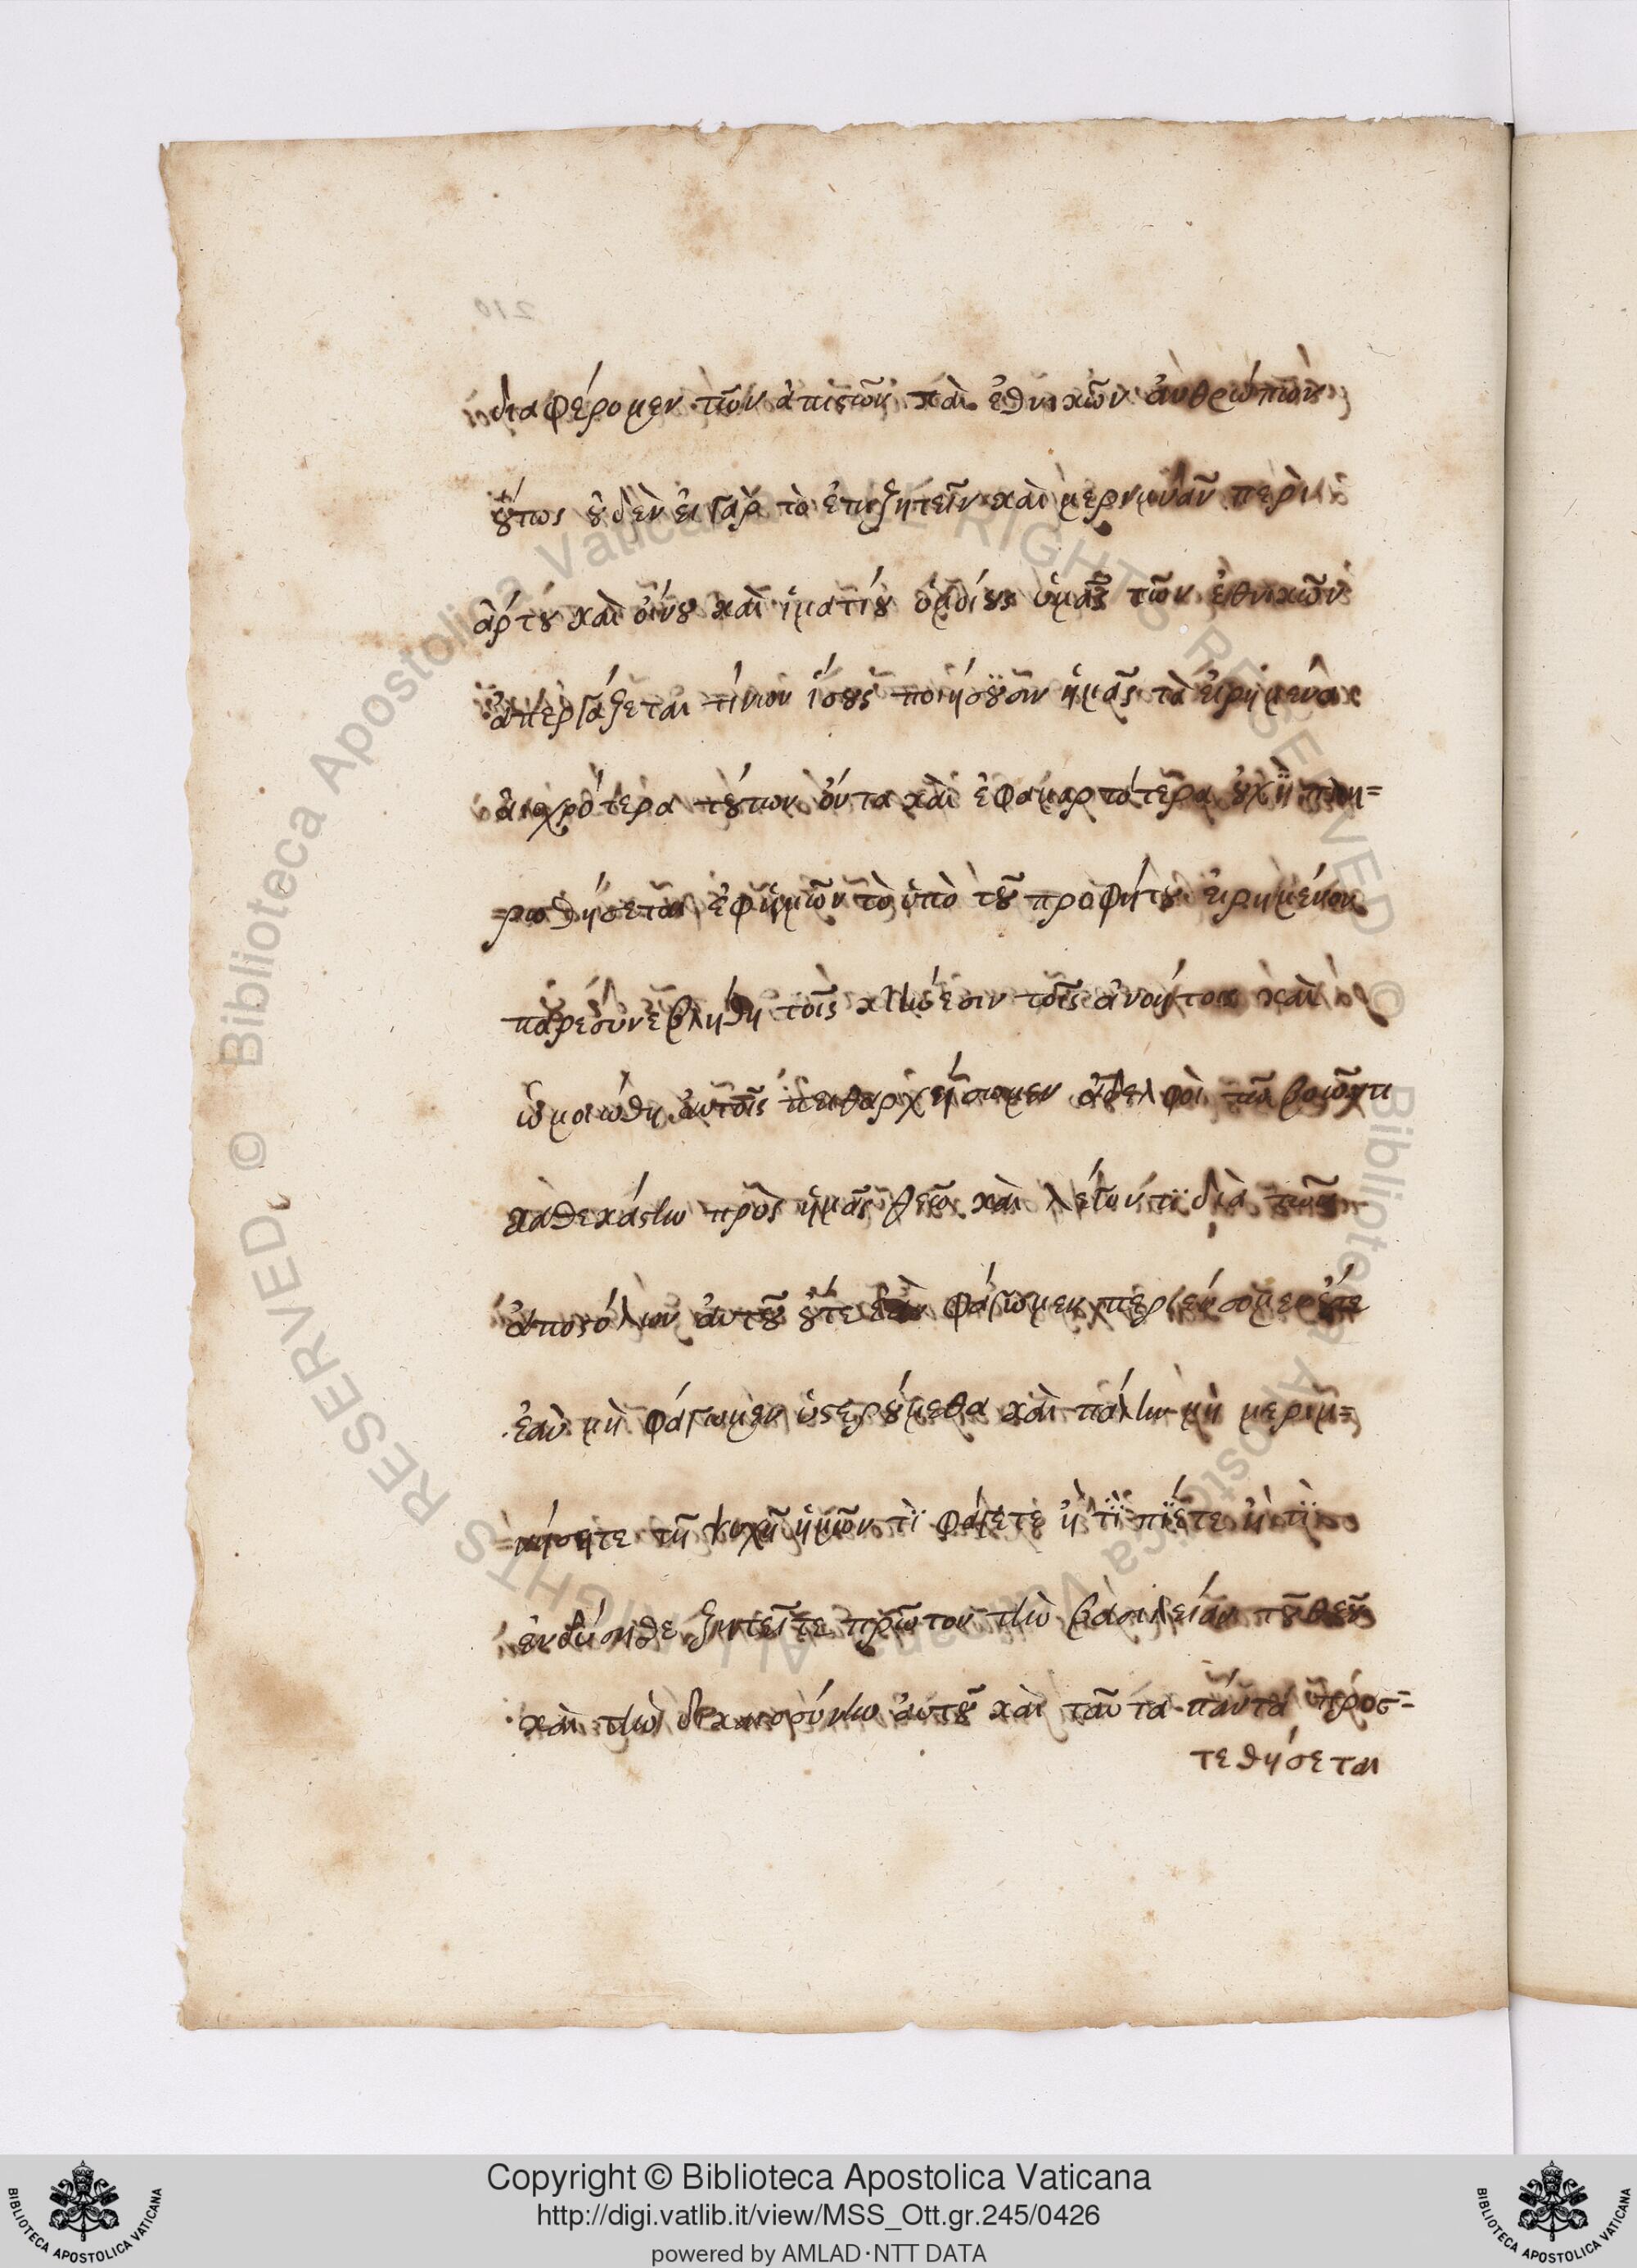 διαφέρομεν τῶν ἀπίστων καὶ ἐθνικῶν ἀνθρώπων
οὕτως οὐδὲν εἰ γὰρ τὸ ἐπιζητεῖν καὶ μεριμνᾶν περὶ
ἄρτου καὶ οἴνου καὶ ἱματίου ὁμοίους ὑμᾶς τῶν ἐθνικῶν
ἀπεργάζεται τίνων ἴσους ποιήσουσιν ἡμᾶς τὰ εἰρημένα
αἰσχρότερα τούτων ὄντα καὶ ἐφαμαρτότερα οὐχὶ πλη=
=ρωθήσεται ἐφ ἡμῶν τὸ ὑπὸ τοῦ προφήτου εἰρημένον
παρεσυνεβλήθη τοῖς κτήνεσιν τοῖς ἀνοήτοις καὶ
ὡμοιώθη αὐτοῖς πειθαρχήσωμεν ἀδελφοὶ τῷ βοῶντι
καθεκάστην πρὸς ἡμᾶς θεῷ καὶ λέγοντι διὰ τῶν
ἀποστόλων αὐτοῦ οὔτε ἐὰν φάγωμεν περισσεύομεν οὔτε
ἐὰν μὴ φάγωμεν ὑστερούμεθα καὶ πάλιν μὴ μεριμ=
=νήσητε τῇ ψυχῇ ἡμῶν τὶ φάγετε ἢ τὶ πίετε ἢ τὶ
ἐνδύσηθε ζητεῖτε πρῶτον τὴν βασιλείαν τοῦ θεοῦ
καὶ τὴν δικαιοσύνην αὐτοῦ καὶ ταῦτα πάντα προσ=
τεθήσεται
210
© Biblioteca Apostolica Vaticana ALL RIGHTS RESERVED
Copyright © Biblioteca Apostolica Vaticana
http://digi.vatlib.it/view/MSS_Ott.gr.245/0426
powered by AMLAD·NTT DATA
BIBLIOTECA APOSTOLICA VATICANA
BIBLIOTECA APOSTOLICA VATICANA